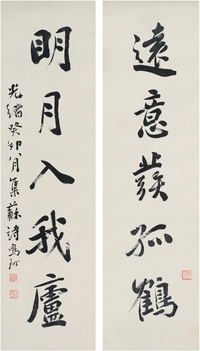 遠意發孤鶴
明月入我廬
光緒癸卯八月集蘇詩鳴珂